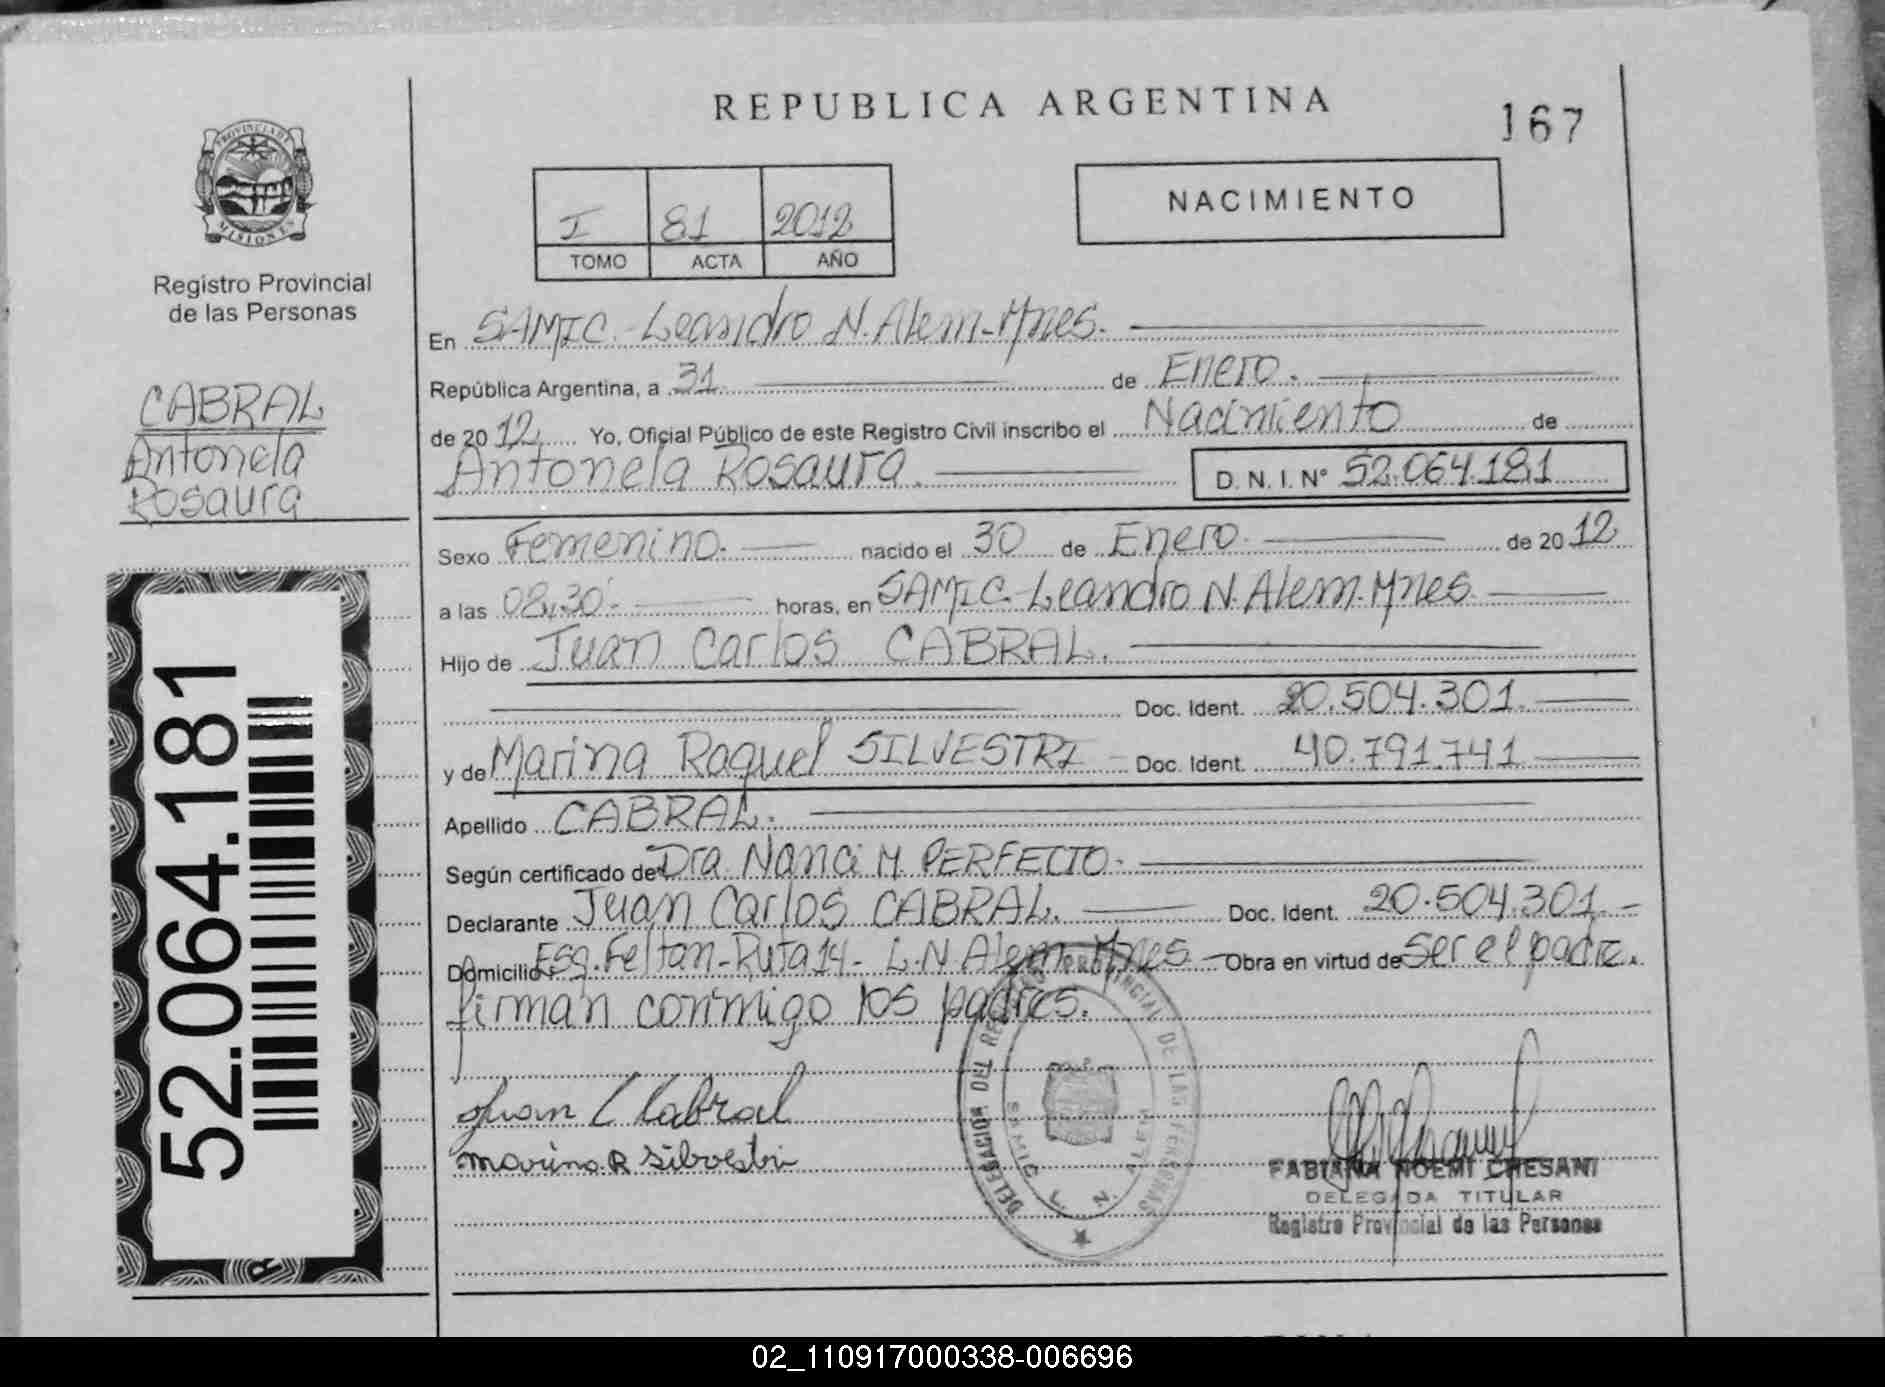 REPUBLICA ARGENTINA
167
PROVINCIA DE
MISIONES
Registro Provincial
de las Personas
CABRAL
Antonela
Rosaura
52.064.181
I 81 2012
TOMO ACTA AÑO
NACIMIENTO
En SAMIC.-Leandro N. Alem-Mnes.
República Argentina, a 31 de Enero.
de 2012. Yo, Oficial Público de este Registro Civil inscribo el Nacimiento de
Antonela Rosaura. D. N. I. N° 52.064.181
Sexo Femenino. nacido el 30 de Enero. de 2012
a las 08,30. horas, en SAMIC-Leandro N. Alem. Mnes
Hijo de Juan Carlos CABRAL.
Doc. Ident. 20.504.301.
y de Marina Raquel SILVESTRI Doc. Ident. 40.791.741
Apellido CABRAL.
Según certificado de Dra. Nanci M. PERFECTO.
Declarante Juan Carlos CABRAL. Doc. Ident. 20.504.301.-
Domicilio Esq. Feltan-Ruta 14- L.N. Alem. Mnes Obra en virtud de Ser el padre.
firman conmigo los padres.
Juan C Cabral
Marina R Silvestri
DELEGACION DEL REGISTRO PROVINCIAL DE LAS PERSONAS
SAMIC L. N. ALEM
FABIANA NOEMI CHESANI
DELEGADA TITULAR
Registro Provincial de las Personas
02_110917000338-006696